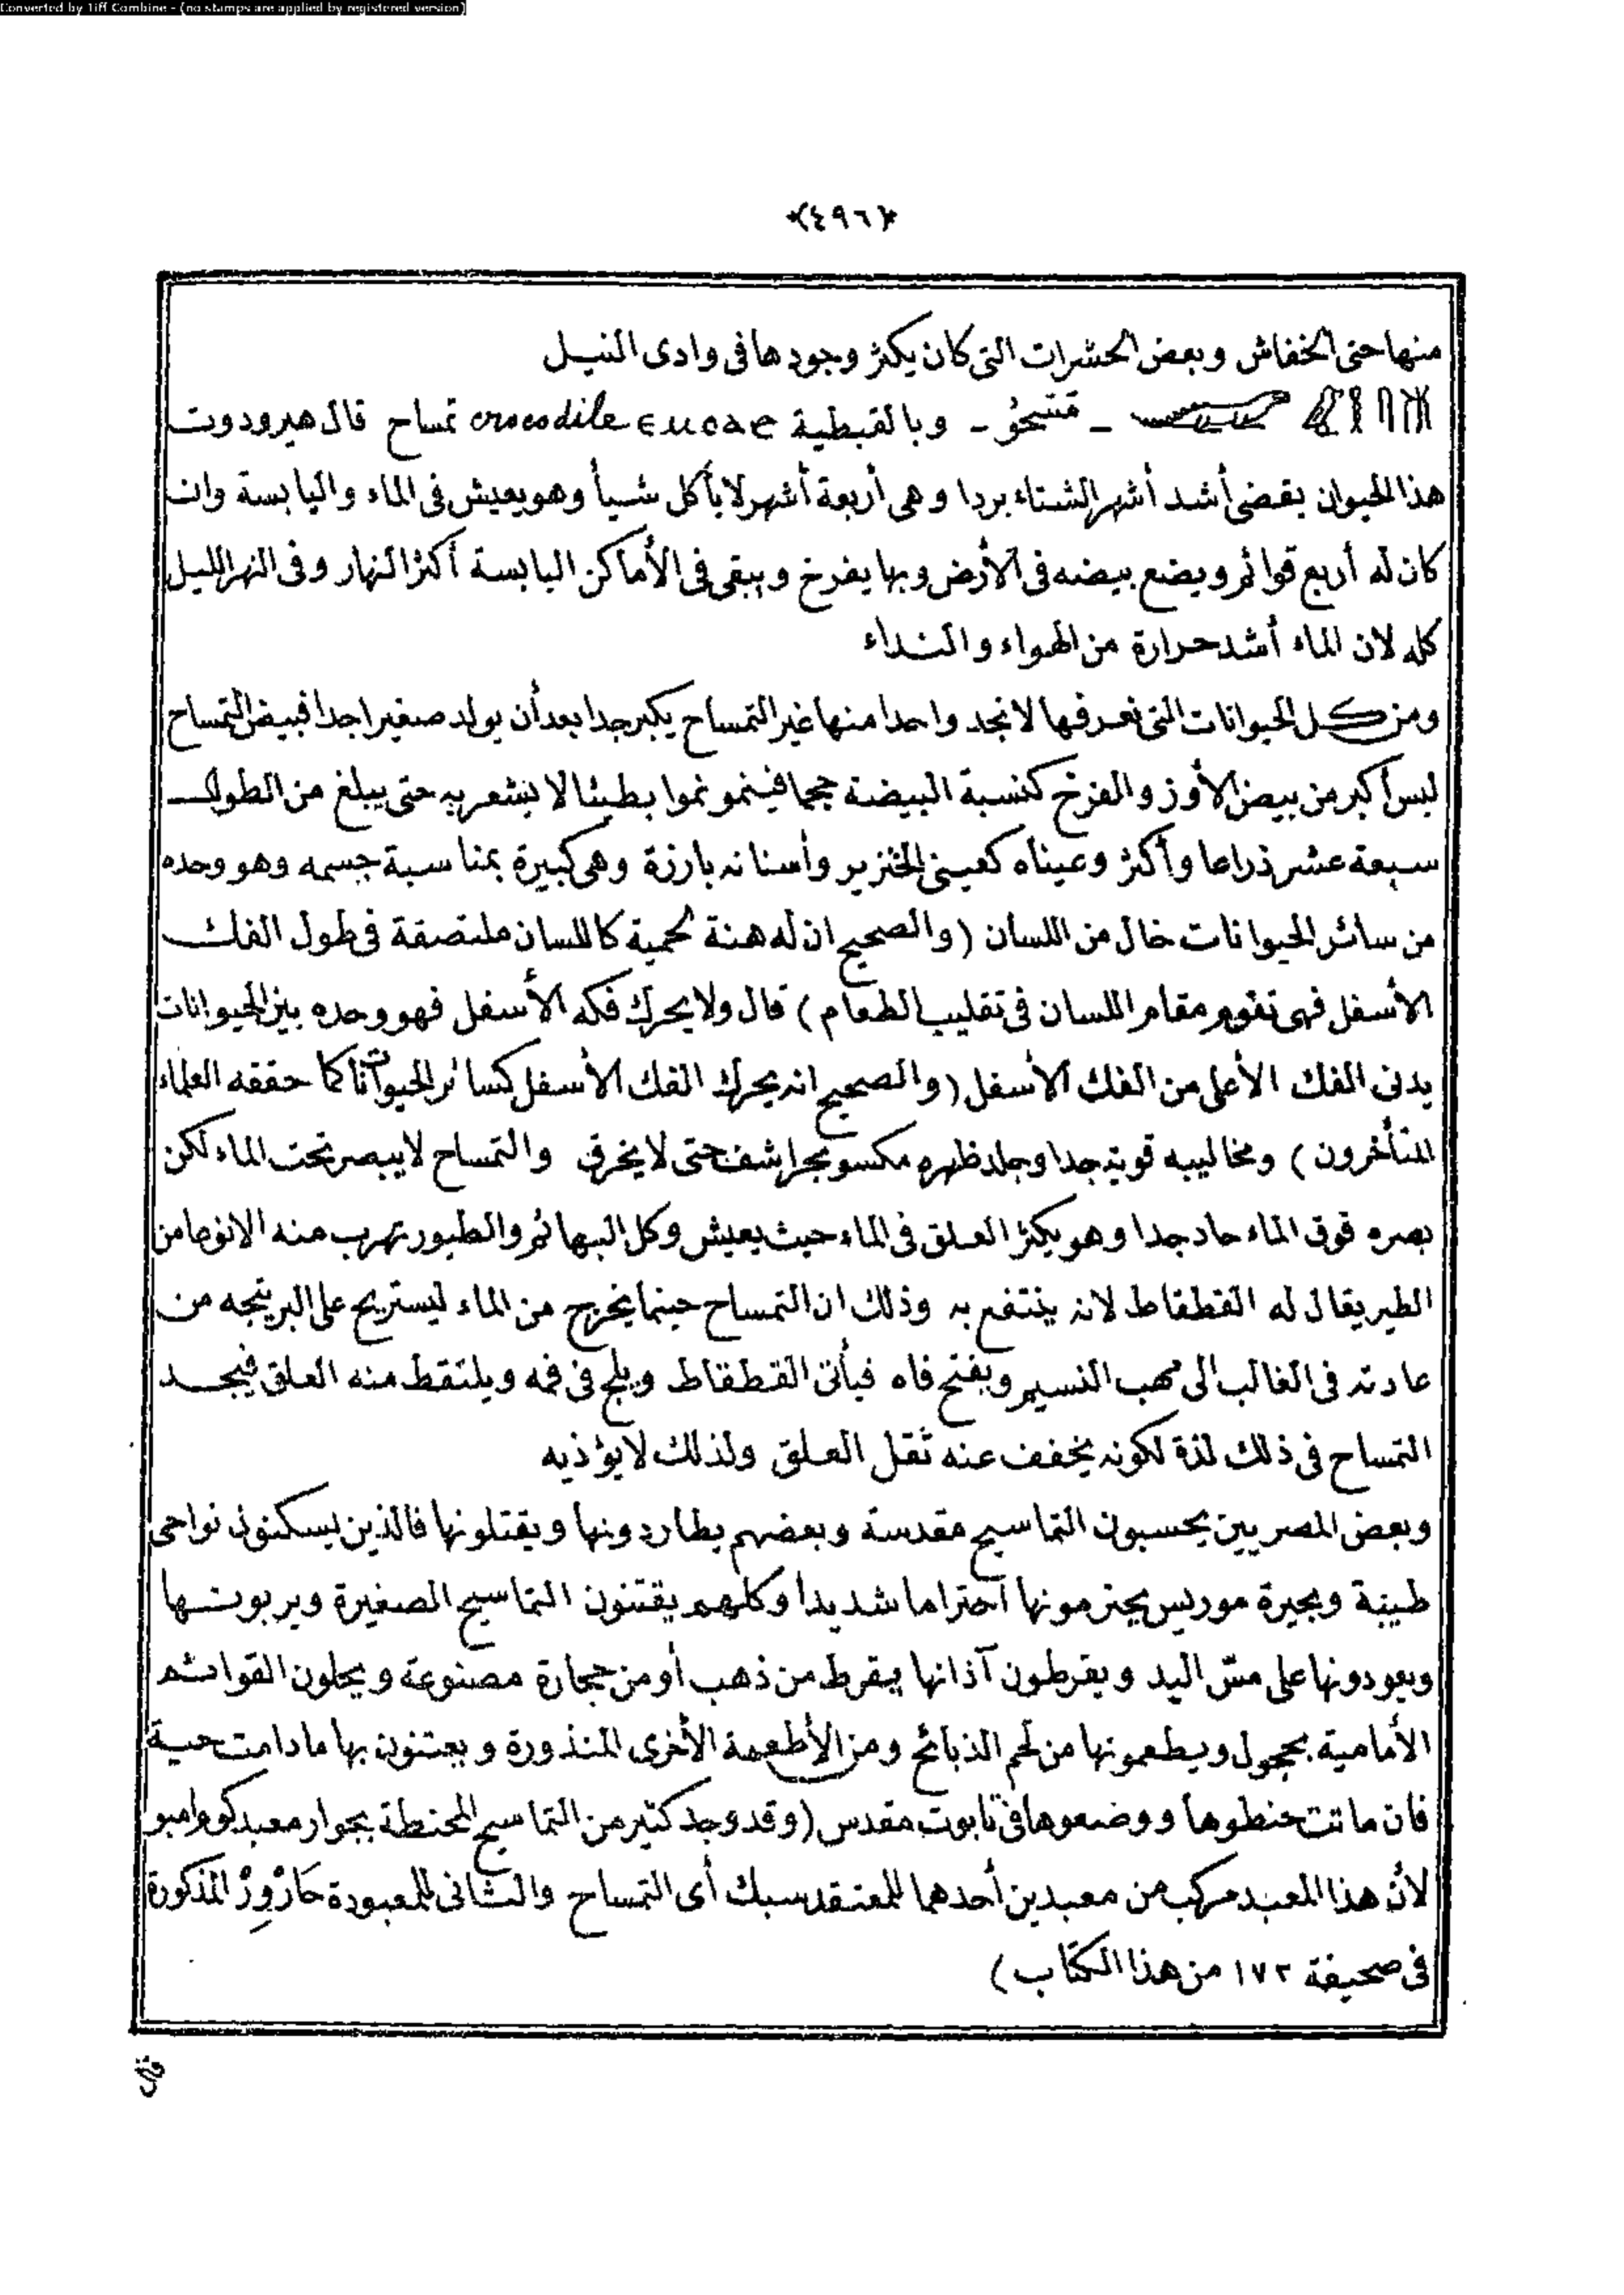 Converted by Tiff Combine - (no stamps are applied by registered version)
﴿٤٩٦﴾
منها حتى الخفاش وبعض الحشرات التى كان يكثر وجودها فى وادى النيل
وبالقبطية crocodile تمساح قال هيرودوت
هذا الحيوان يقضى أشد أشهر الشتاء بردا وهى أربعة أشهر لا يأكل شيأ وهو يعيش فى الماء واليابسة وان
كان له أربع قوائم ويضع بيضه فى الأرض وبها يفرخ ويبقى فى الأماكن اليابسة أكثر النهار وفى النهر الليل
كله لان الماء أشد حرارة من الهواء والنداء
ومن كل الحيوانات التى نعرفها لا نجد واحدا منها غير التمساح يكبر جدا بعد أن يولد صغيرا جدا فبيض التمساح
ليس أكبر من بيض الأوز والفرخ كنسبة البيضة حجما فينمو نموا بطيئا لا يشعر به حتى يبلغ من الطول
سبعة عشر ذراعا وأكثر وعيناه كعينى الخنزير وأسنانه بارزة وهى كبيرة بمناسبة جسمه وهو وحده
من سائر الحيوانات خال من اللسان (والصحيح ان له هنة لحمية كاللسان ملتصقة فى طول الفك
الأسفل فهى تقوم مقام اللسان فى تقليب الطعام) قال ولا يحرك فكه الأسفل فهو وحده بين الحيوانات
يدنى الفك الأعلى من الفك الأسفل (والصحيح انه يحرك الفك الأسفل كسائر الحيوانات كما حققه العلماء
المتأخرون) ومخاليبه قوية جدا وجلد ظهره مكسو بحراشف حتى لا يخرق والتمساح لا يبصر تحت الماء لكن
بصره فوق الماء حاد جدا وهو يكثر العلق فى الماء حيث يعيش وكل البهائم والطيور تهرب منه الا نوعا من
الطير يقال له القطقاط لانه ينتفع به وذلك ان التمساح حينما يخرج من الماء ليستريح على البر يتجه من
عادته فى الغالب الى مهب النسيم ويفتح فاه فيأتى القطقاط ويلج فى فمه ويلتقط منه العلق فيجد
التمساح فى ذلك لذة لكونه يخفف عنه ثقل العلق ولذلك لا يؤذيه
وبعض المصريين يحسبون التماسيح مقدسة وبعضهم يطاردونها ويقتلونها فالذين يسكنون نواحى
طيبة وبحيرة موريس يحترمونها احتراما شديدا وكلهم يقتنون التماسيح الصغيرة ويربونها
ويعودونها على مسّ اليد ويقرطون آذانها بقرط من ذهب أو من حجارة مصنوعة ويحلون القوائم
الأمامية بحجول ويطعمونها من لحم الذبائح ومن الأطعمة الأخرى المنذورة ويعتنون بها ما دامت حية
فان ماتت حنطوها ووضعوها فى تابوت مقدس (وقد وجد كثير من التماسيح المحنطة بجوار معبد كوم امبو
لأن هذا المعبد مركب من معبدين أحدهما للمعتقد سبك أى التمساح والثانى للمعبودة حَارْوِرْ المذكورة
فى صحيفة ١٧٢ من هذا الكتاب)